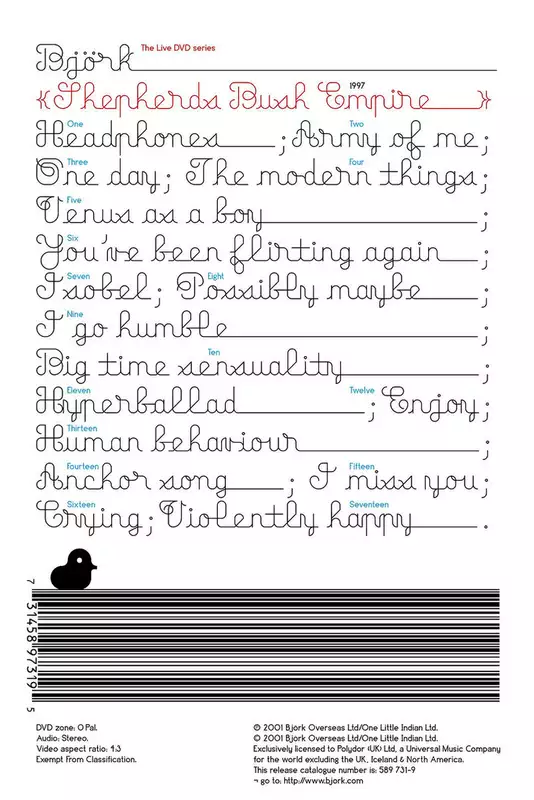 Björk The Live DVD series
《Shepherds Bush Empire 1997》
One Two
Headphones ; Army of me;
Three Four
One day; The modern things;
Five
Venus as a boy ;
Six
You've been flirting again ;
Seven Eight
Isobel; Possibly maybe ;
Nine
I go humble ;
Ten
Big time sensuality ;
Eleven Twelve
Hyperballad ; Enjoy;
Thirteen
Human behaviour ;
Fourteen Fifteen
Anchor song ; I miss you;
Sixteen Seventeen
Crying; Violently happy .
7 31458 97319 5
DVD zone: 0 Pal.
Audio: Stereo.
Video aspect ratio: 4:3
Exempt from Classification.
© 2001 Björk Overseas Ltd/One Little Indian Ltd.
© 2001 Björk Overseas Ltd/One Little Indian Ltd.
Exclusively licensed to Polydor (UK) Ltd, a Universal Music Company
for the world excluding the UK, Iceland & North America.
This release catalogue number is: 589 731-9
¬ go to: http://www.bjork.com